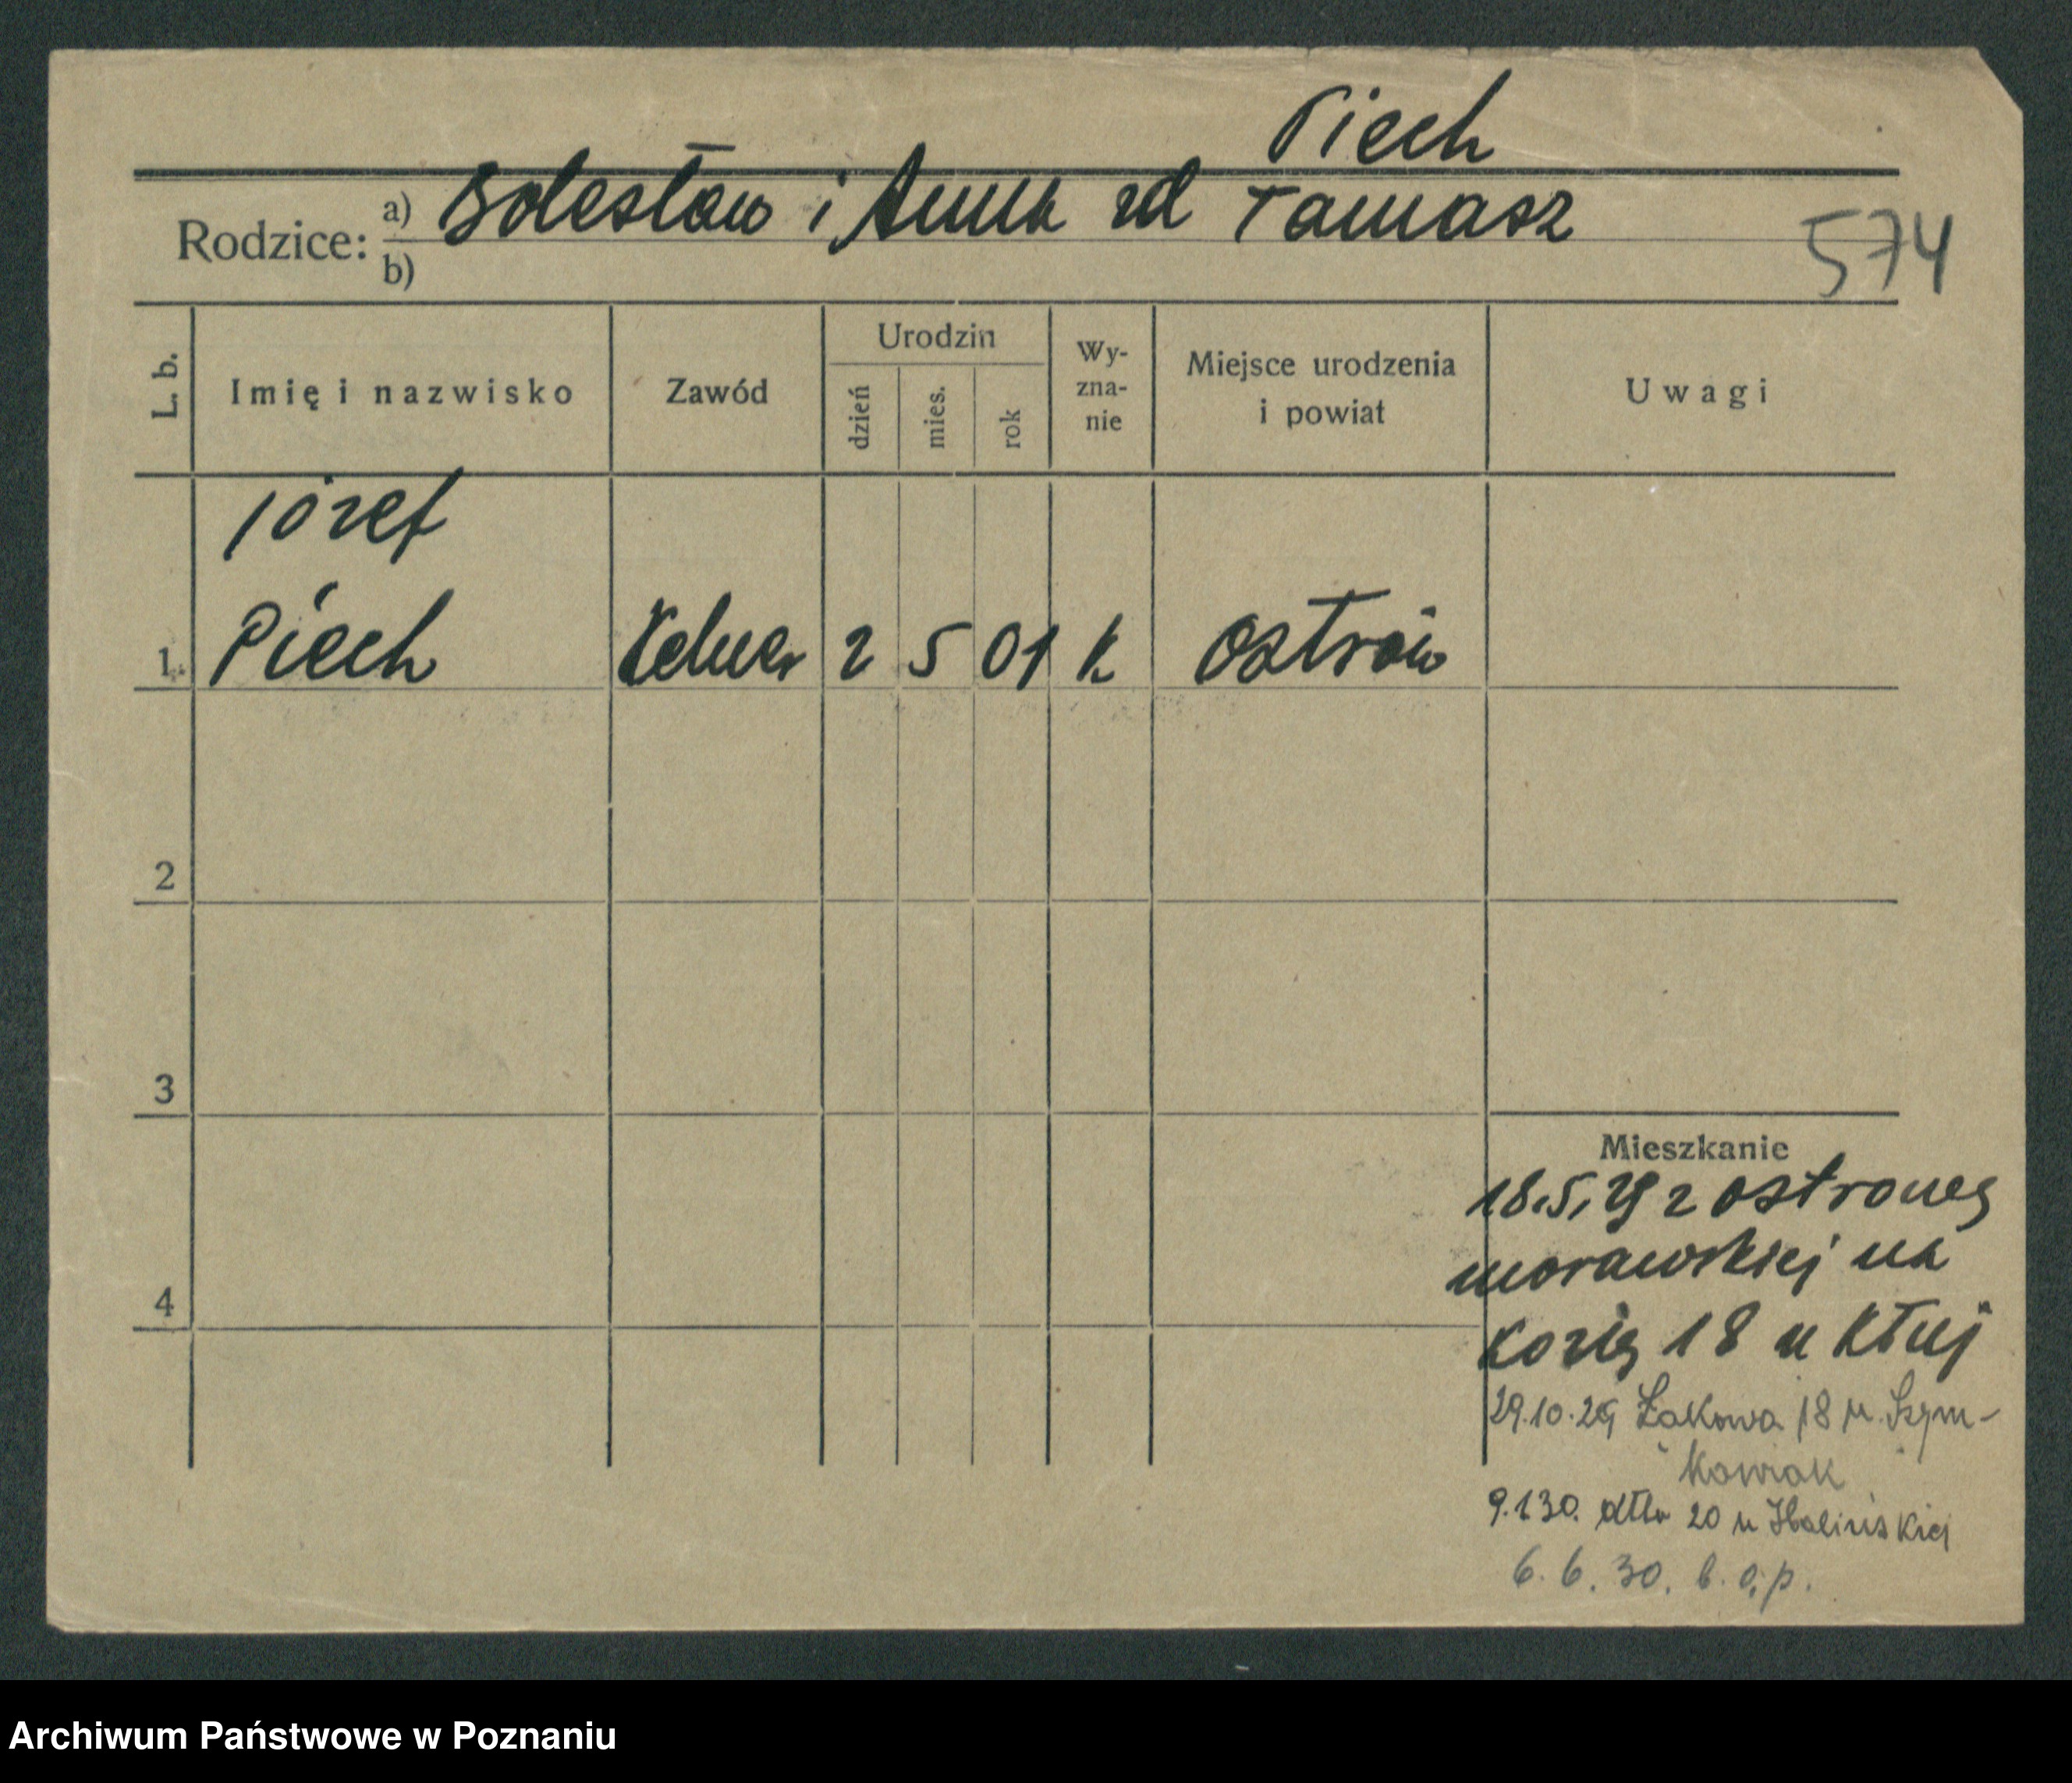 Piech
Rodzice: a) Bolesław i Anna zd Tamasz
b)
574
L. b.
Imię i nazwisko
Zawód
Urodzin
dzień
mies.
rok
Wy-
zna-
nie
Miejsce urodzenia
i powiat
Uwagi
Józef
1. Piech Kelner 2 5 01 k Ostrów
2
3
Mieszkanie
18.5.29 z Ostrowy
morawskiej na
4
Kozią 18 u
29.10.29 Łąkowa 18 u. Szym-
kowiak
9.1.30. dtto 20 u
6.6.30. b.o.p.
Archiwum Państwowe w Poznaniu